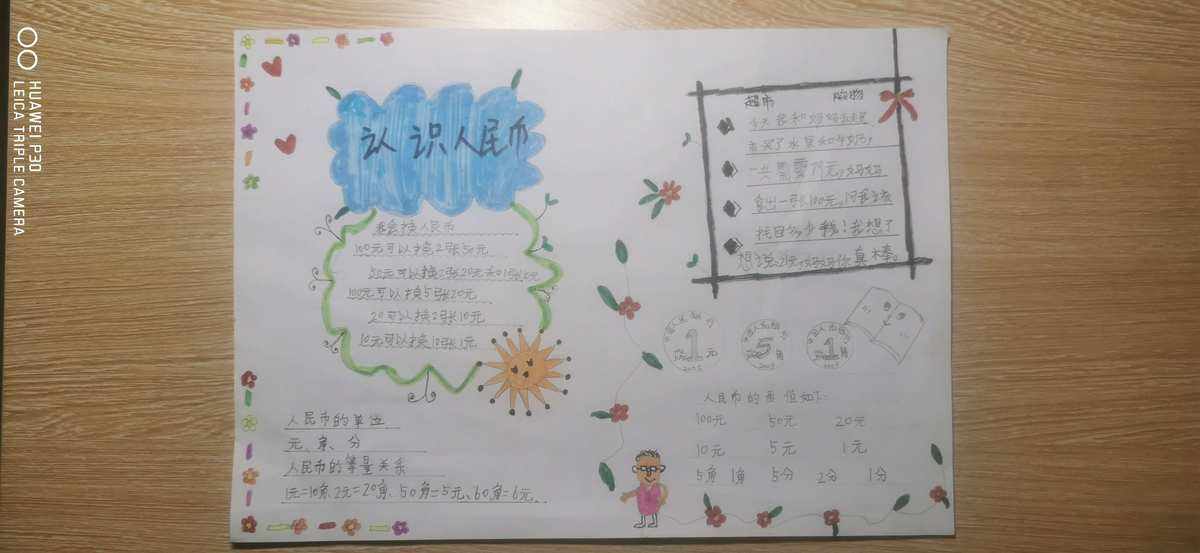 HUAWEI P30
LEICA TRIPLE CAMERA
认识人民币
我会换人民币
100元可以换2张50元
50元可以换2张20元和1张10元
100元可以换5张20元
20可以换2张10元
10元可以换10张1元
人民币的单位
元、角、分
人民币的等量关系
1元=10角、2元=20角、50角=5元、60角=6元。
超市 购物
今天我和妈妈去超
市买了水果和牛奶,
一共需要71元,妈妈
拿出一张100元,问我该
找回多少钱!我想了
想说:29元,妈妈你真棒。
中国人民银行
1元
中国人民银行
5角
中国人民银行
1角
人民币的面值如下:
100元 50元 20元
10元 5元 1元
5角 1角 5分 2分 1分